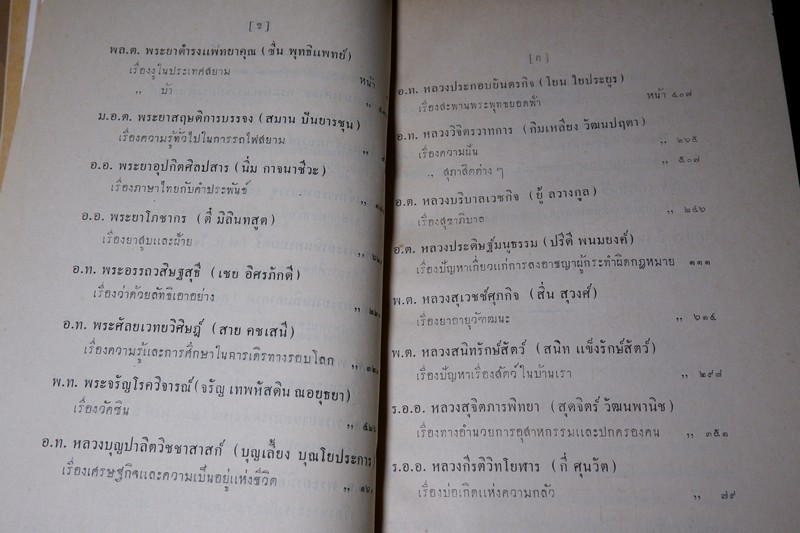 [ ๖ ]
พล.ต. พระยาดำรงแพทยาคุณ (ชื่น พุทธิแพทย์)
เรื่องงูในประเทศสยาม หน้า
,, บ้า ,,
ม.อ.ต. พระยาสฤษดิการบรรจง (สมาน ปันยารชุน)
เรื่องความรู้ทั่วไปในการรถไฟสยาม ,,
อ.อ. พระยาอุปกิตศิลปสาร (นิ่ม กาจนาชีวะ)
เรื่องภาษาไทยกับคำประพันธ์ ,,
อ.อ. พระยาโภชากร (ตี๋ มิลินทสูต)
เรื่องยาสูบและฝ้าย ,,
อ.ท. พระอรรถวสิษฐสุธี (เชย อิศรภักดี)
เรื่องว่าด้วยลัทธิเอาอย่าง ,,
อ.ท. พระศัลยเวทยวิศิษฎ์ (สาย คชเสนี)
เรื่องความรู้และการศึกษาในการเดิรทางรอบโลก ,,
พ.ท. พระจรัญโรควิจารณ์ (จรัญ เทพหัสดิน ณอยุธยา)
เรื่องวัคซีน ,,
อ.ท. หลวงบุญปาลิตวิชชาสาสก์ (บุญเลี้ยง บุณโยประการ)
เรื่องเศรษฐกิจและความเป็นอยู่แห่งชีวิต ,,
[ ค ]
อ.ท. หลวงประกอบยันตรกิจ (โยน ใยประยูร)
เรื่องสะพานพระพุทธยอดฟ้า หน้า ๔๐๗
อ.ท. หลวงวิจิตรวาทการ (กิมเหลียง วัฒนปฤดา)
เรื่องความฝัน ,, ๒๖๕
,, สุภาสิตต่าง ๆ ,, ๕๐๗
อ.ต. หลวงบริบาลเวชกิจ (ยู้ ลวางกูล)
เรื่องสุขาภิบาล ,, ๒๔๖
อ.ต. หลวงประดิษฐ์มนูธรรม (ปรีดี พนมยงค์)
เรื่องปัญหาเกี่ยวแก่การลงอาชญาผู้กระทำผิดกฎหมาย ๑๑๑
พ.ต. หลวงสุเวชช์ศุภกิจ (สิ่น สุวงศ์)
เรื่องยาอายุวัฑฒนะ ,, ๖๑๕
พ.ต. หลวงสนิทรักษ์สัตว์ (สนิท แข็งรักษ์สัตว์)
เรื่องปัญหาเรื่องสัตว์ในบ้านเรา ,, ๒๙๗
ร.อ.อ. หลวงสุจิตภารพิทยา (สุดจิตร์ วัฒนพานิช)
เรื่องทางอำนวยการอุสาหกรรมและปกครองคน ,, ๓๕๑
ร.อ.อ. หลวงกีรติวิทโยฬาร (กี่ ศุนวัต)
เรื่องบ่อเกิดแห่งความกลัว ,, ๗๙